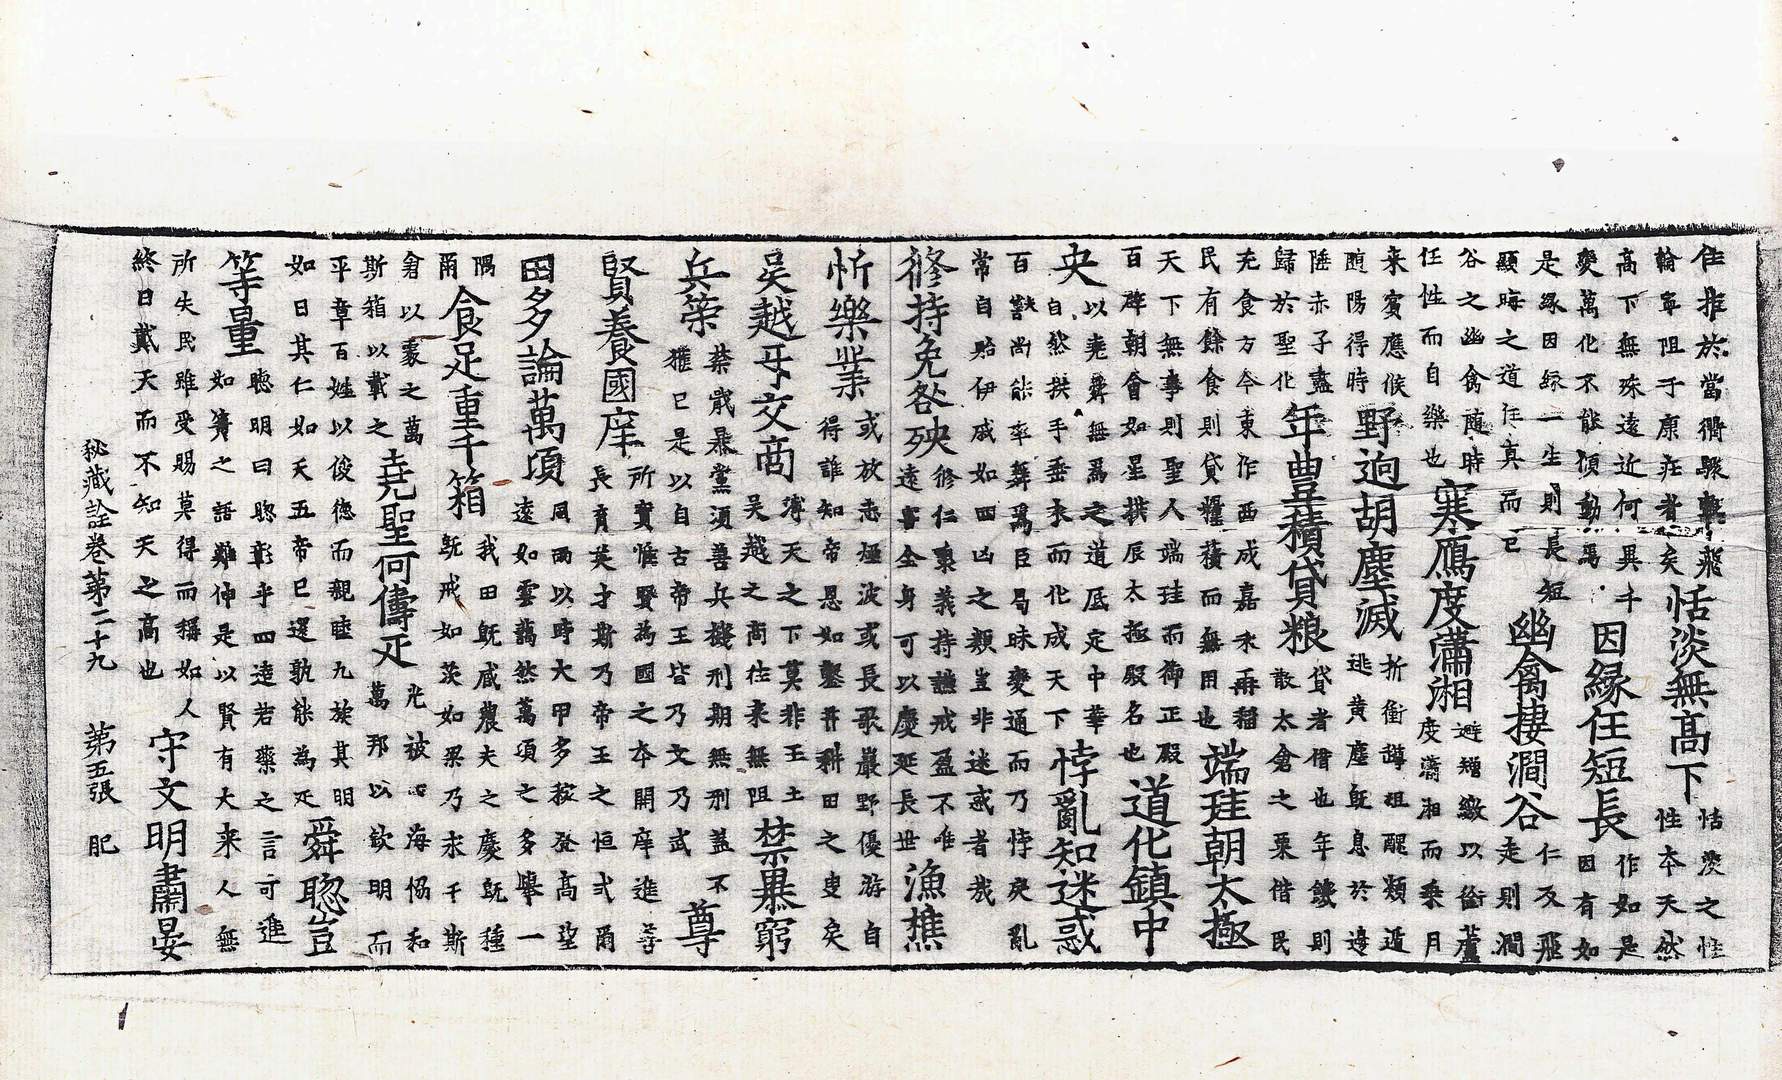 住推於當衢驟轡飛
輪寧阻于康莊者矣
恬淡無高下
恬淡之性
性本天然
高下無殊遠近何異千
變萬化不能傾動焉
因緣任短長
作如是
因有如
是緣因緣一生則長短
顯晦之道任真而已
幽禽棲澗谷
仁及飛
走則澗
谷之幽禽隨時
任性而自樂也
寒鴈度瀟湘
避矰繳以銜蘆
度瀟湘而乘月
来賓應候
隨陽得時
野逈胡塵滅
折衝罇俎醜類遁
逃黃塵旣息於邊
陲赤子盡
歸於聖化
年豊積貸粮
貸者借也年饑則
散太倉之粟借民
充食方今東作西成嘉禾再稲
民有餘食則貸糧積而無用也
端珪朝太極
天下無事則聖人端珪而御正殿
百辟朝會如星拱辰太極殿名也
道化鎮中
央
以堯舜無爲之道底定中華
自然拱手垂衣而化成天下
悖亂知迷惑
百獸尚能率舞焉臣局昧變通而乃悖戾亂
常自貽伊戚如四凶之類豈非迷惑者哉
修持免咎殃
修仁秉義持謙戒盈不唯
遠害全身可以慶延長世
漁樵
忻樂業
或放志煙波或長歌巖野優游自
得誰知帝恩如鑿井耕田之叟矣
吴越牙交商
溥天之下莫非王土
吴越之商往来無阻
禁暴窮
兵策
禁戢暴黨須善兵機刑期無刑蓋不
獲已是以自古帝王皆乃文乃武
尊
賢養國庠
所寶惟賢為國之本開庠進善
長育英才斯乃帝王之恒式爾
田多論萬頃
風雨以時大甲多稼登高望
遠如雲藹然萬頃之多舉一
隅
爾
食足重千箱
我田旣咸農夫之慶旣種
旣戒如茨如梁乃求千斯
倉以處之萬
斯箱以載之
堯聖何儔疋
光被四海協和
萬邦以欽明而
平章百姓以俊德而親睦九族其明
如日其仁如天五帝已還孰能為疋
舜聦豈
等量
聦明曰聦彰乎四逵若藥之言可進
如簣之語難伸是以賢有大来人無
所失民雖受賜莫得而稱如人
終日戴天而不知天之高也
守文明肅晏
秘藏詮卷第二十九　第五張　肥